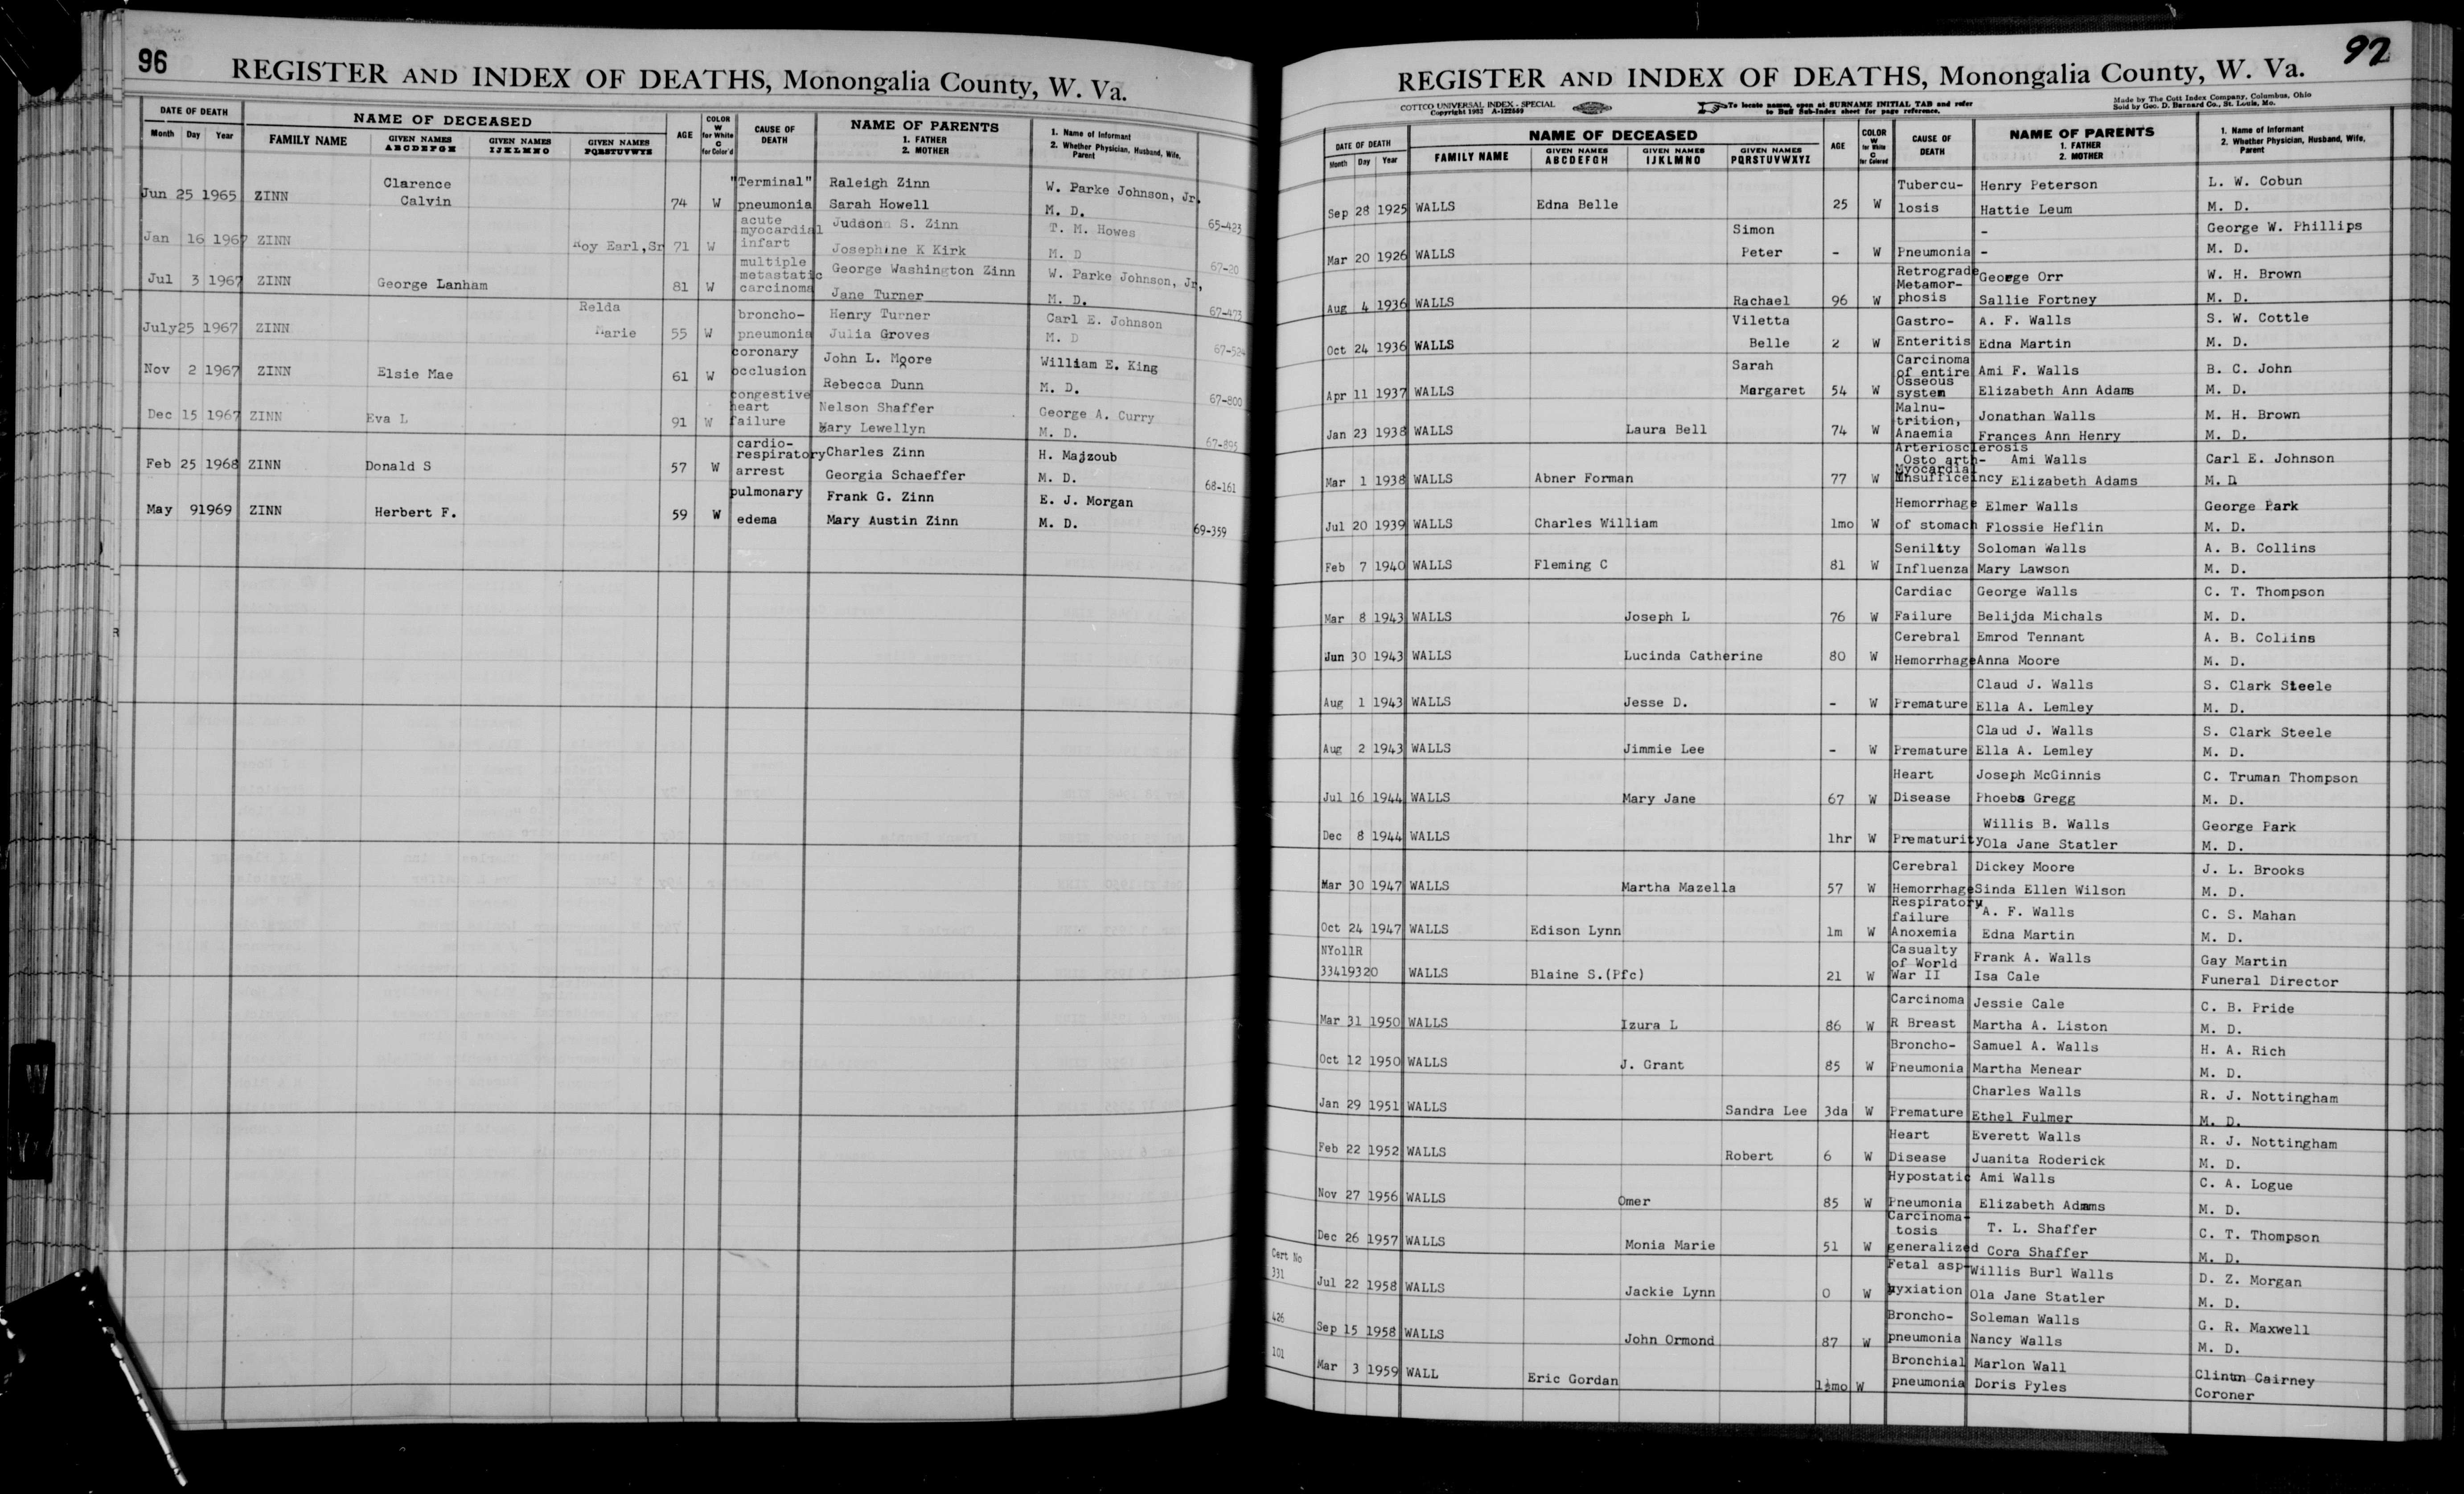 96
REGISTER AND INDEX OF DEATHS, Monongalia County, W. Va.
DATE OF DEATH
Month Day Year
NAME OF DECEASED
FAMILY NAME
GIVEN NAMES ABCDEFGH
GIVEN NAMES IJKLMNO
GIVEN NAMES PQRSTUVWXYZ
AGE
COLOR W for White C for Color'd
CAUSE OF DEATH
NAME OF PARENTS
1. FATHER
2. MOTHER
1. Name of Informant
2. Whether Physician, Husband, Wife, Parent
Clarence "Terminal" Raleigh Zinn W. Parke Johnson, Jr.
Jun 25 1965 ZINN Calvin 74 W pneumonia Sarah Howell M. D. 65-423
acute myocardial Judson S. Zinn T. M. Howes
Jan 16 1967 ZINN Roy Earl,Sr 71 W infart Josephine K Kirk M. D 67-20
multiple metastatic George Washington Zinn W. Parke Johnson, Jr,
Jul 3 1967 ZINN George Lanham 81 W carcinoma Jane Turner M. D. 67-473
Relda broncho- Henry Turner Carl E. Johnson
July 25 1967 ZINN Marie 55 W pneumonia Julia Groves M. D 67-524
coronary John L. Moore William E. King
Nov 2 1967 ZINN Elsie Mae 61 W occlusion Rebecca Dunn M. D. 67-800
congestive heart Nelson Shaffer George A. Curry
Dec 15 1967 ZINN Eva L 91 W failure Mary Lewellyn M. D. 67-895
cardio- respiratory Charles Zinn H. Majzoub
Feb 25 1968 ZINN Donald S 57 W arrest Georgia Schaeffer M. D. 68-161
pulmonary Frank G. Zinn E. J. Morgan
May 9 1969 ZINN Herbert F. 59 W edema Mary Austin Zinn M. D. 69-359
W
97
REGISTER AND INDEX OF DEATHS, Monongalia County, W. Va.
COTTCO UNIVERSAL INDEX - SPECIAL
Copyright 1952 A-122550
To locate names, open at SURNAME INITIAL TAB and refer
to Buff Sub-Index sheet for page reference.
Made by The Cott Index Company, Columbus, Ohio
Sold by Geo. D. Barnard Co., St. Louis, Mo.
DATE OF DEATH
Month Day Year
NAME OF DECEASED
FAMILY NAME
GIVEN NAMES ABCDEFGH
GIVEN NAMES IJKLMNO
GIVEN NAMES PQRSTUVWXYZ
AGE
COLOR W for White C for Colored
CAUSE OF DEATH
NAME OF PARENTS
1. FATHER
2. MOTHER
1. Name of Informant
2. Whether Physician, Husband, Wife, Parent
Tubercu- Henry Peterson L. W. Cobun
Sep 28 1925 WALLS Edna Belle 25 W losis Hattie Leum M. D.
Simon - George W. Phillips
Mar 20 1926 WALLS Peter - W Pneumonia - M. D.
Retrograde Metamor- George Orr W. H. Brown
Aug 4 1936 WALLS Rachael 96 W phosis Sallie Fortney M. D.
Viletta Gastro- A. F. Walls S. W. Cottle
Oct 24 1936 WALLS Belle 2 W Enteritis Edna Martin M. D.
Sarah Carcinoma of entire Ami F. Walls B. C. John
Apr 11 1937 WALLS Margaret 54 W Osseous system Elizabeth Ann Adams M. D.
Malnu- trition, Jonathan Walls M. H. Brown
Jan 23 1938 WALLS Laura Bell 74 W Anaemia Frances Ann Henry M. D.
Arteriosclerosis Osto arth- Ami Walls Carl E. Johnson
Mar 1 1938 WALLS Abner Forman 77 W Myocardial Insufficeincy Elizabeth Adams M. D
Hemorrhage Elmer Walls George Park
Jul 20 1939 WALLS Charles William 1mo W of stomach Flossie Heflin M. D.
Seniltty Soloman Walls A. B. Collins
Feb 7 1940 WALLS Fleming C 81 W Influenza Mary Lawson M. D.
Cardiac George Walls C. T. Thompson
Mar 8 1943 WALLS Joseph L 76 W Failure Belijda Michals M. D.
Cerebral Emrod Tennant A. B. Collins
Jun 30 1943 WALLS Lucinda Catherine 80 W Hemorrhage Anna Moore M. D.
Claud J. Walls S. Clark Steele
Aug 1 1943 WALLS Jesse D. - W Premature Ella A. Lemley M. D.
Claud J. Walls S. Clark Steele
Aug 2 1943 WALLS Jimmie Lee - W Premature Ella A. Lemley M. D.
Heart Joseph McGinnis C. Truman Thompson
Jul 16 1944 WALLS Mary Jane 67 W Disease Phoebs Gregg M. D.
Willis B. Walls George Park
Dec 8 1944 WALLS 1hr W Prematurity Ola Jane Statler M. D.
Cerebral Dickey Moore J. L. Brooks
Mar 30 1947 WALLS Martha Mazella 57 W Hemorrhage Sinda Ellen Wilson M. D.
Respiratory failure A. F. Walls C. S. Mahan
Oct 24 1947 WALLS Edison Lynn 1m W Anoxemia Edna Martin M. D.
NYo11R Casualty of World Frank A. Walls Gay Martin
33419320 WALLS Blaine S.(Pfc) 21 W War II Isa Cale Funeral Director
Carcinoma Jessie Cale C. B. Pride
Mar 31 1950 WALLS Izura L 86 W R Breast Martha A. Liston M. D.
Broncho- Samuel A. Walls H. A. Rich
Oct 12 1950 WALLS J. Grant 85 W Pneumonia Martha Menear M. D.
Charles Walls R. J. Nottingham
Jan 29 1951 WALLS Sandra Lee 3da W Premature Ethel Fulmer M. D.
Heart Everett Walls R. J. Nottingham
Feb 22 1952 WALLS Robert 6 W Disease Juanita Roderick M. D.
Hypostatic Ami Walls C. A. Logue
Nov 27 1956 WALLS Omer 85 W Pneumonia Elizabeth Adams M. D.
Carcinoma- tosis T. L. Shaffer C. T. Thompson
Dec 26 1957 WALLS Monia Marie 51 W generalized Cora Shaffer M. D.
Cert No
331 Fetal asp- Willis Burl Walls D. Z. Morgan
Jul 22 1958 WALLS Jackie Lynn 0 W hyxiation Ola Jane Statler M. D.
426 Broncho- Soleman Walls G. R. Maxwell
Sep 15 1958 WALLS John Ormond 87 W pneumonia Nancy Walls M. D.
101 Bronchial Marlon Wall Clinton Cairney
Mar 3 1959 WALL Eric Gordan 1½mo W pneumonia Doris Pyles Coroner